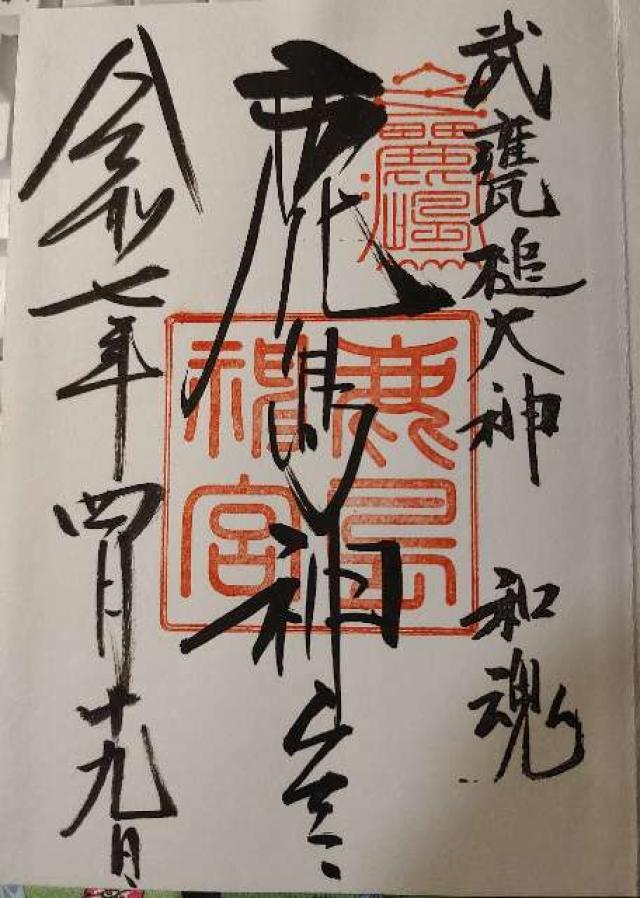 武甕槌大神 和魂
鹿島神宮
鹿島神宮
令和七年四月十九日